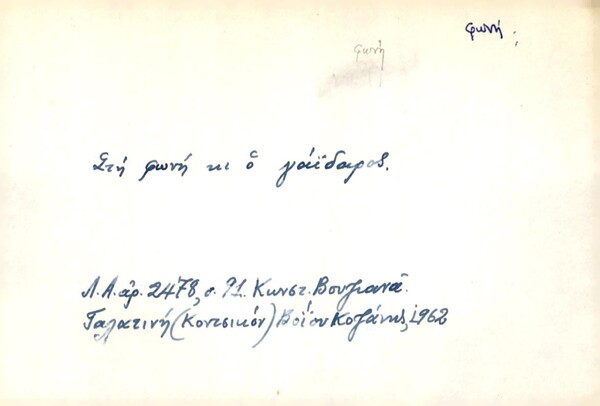 φωνή;
φωνή
Στή φωνή κι ὁ γάϊδαρος.
Λ.Α. ἀρ. 2478, σ. 91. Κωνστ. Βουζιανᾶ.
Γαλατινή (Κοντσικόν) Βοΐου Κοζάνης, 1962